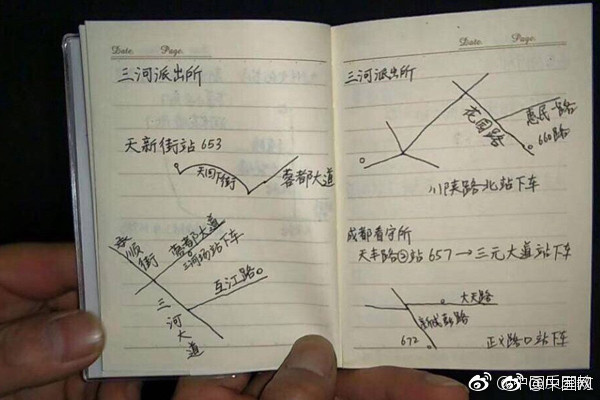 Date. Page.
三河派出所
天新街站 653
天回下街
蓉都大道
蓉都大道
三河场站下车
顺街
互江路
三河大道
Date. Page.
三河派出所
花园路
惠民路
660路
川陕路北站下车
成都看守所
天丰路②站 657→三元大道站下车
大天路
672
正义路口站下车